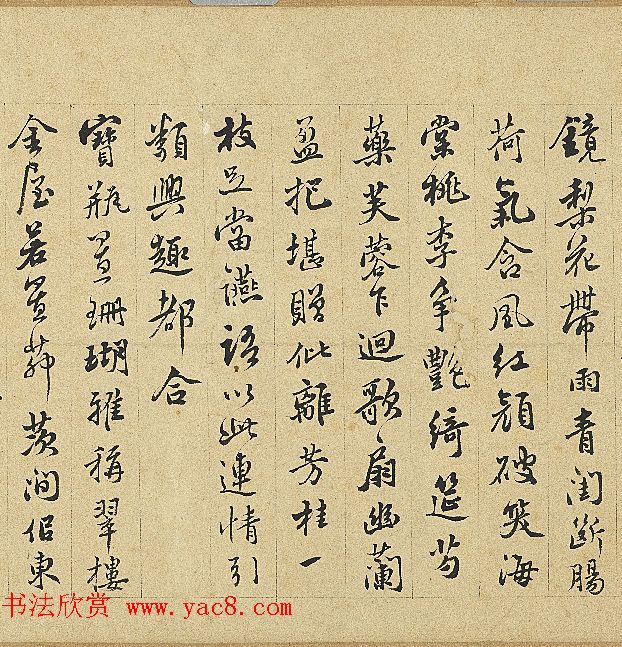 鏡梨花帶雨青閨斷腸
荷氣含風紅顏破笑海
棠桃李爭艷綺筵芍
藥芙蓉乍迴歌扇幽蘭
盈把堪贈仳離芳桂一
枝足當讌語以此連情引
類興趣都合
寶瓶置珊瑚雅稱翠樓
金屋若置荈茨澗侶東
书法欣赏 www.yac8.com